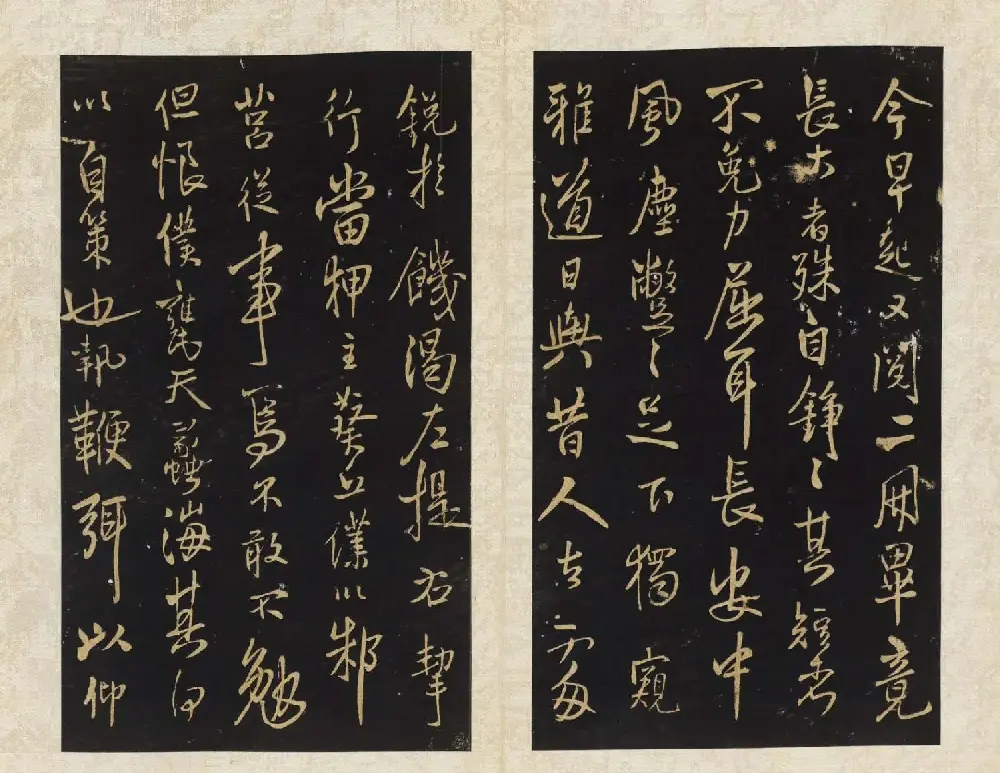 今早起又閱二冊畢竟
長大者殊自錚〻其短者
不免力屈耳長安中
風塵蹩〻足下獨窺
雅道日與昔人
銳於饑渴左提右挈
行當狎主葵丘僕以邾
莒從事焉不敢不勉
但恨僕甕天蠡海其何
以自策也執鞭弭以仰